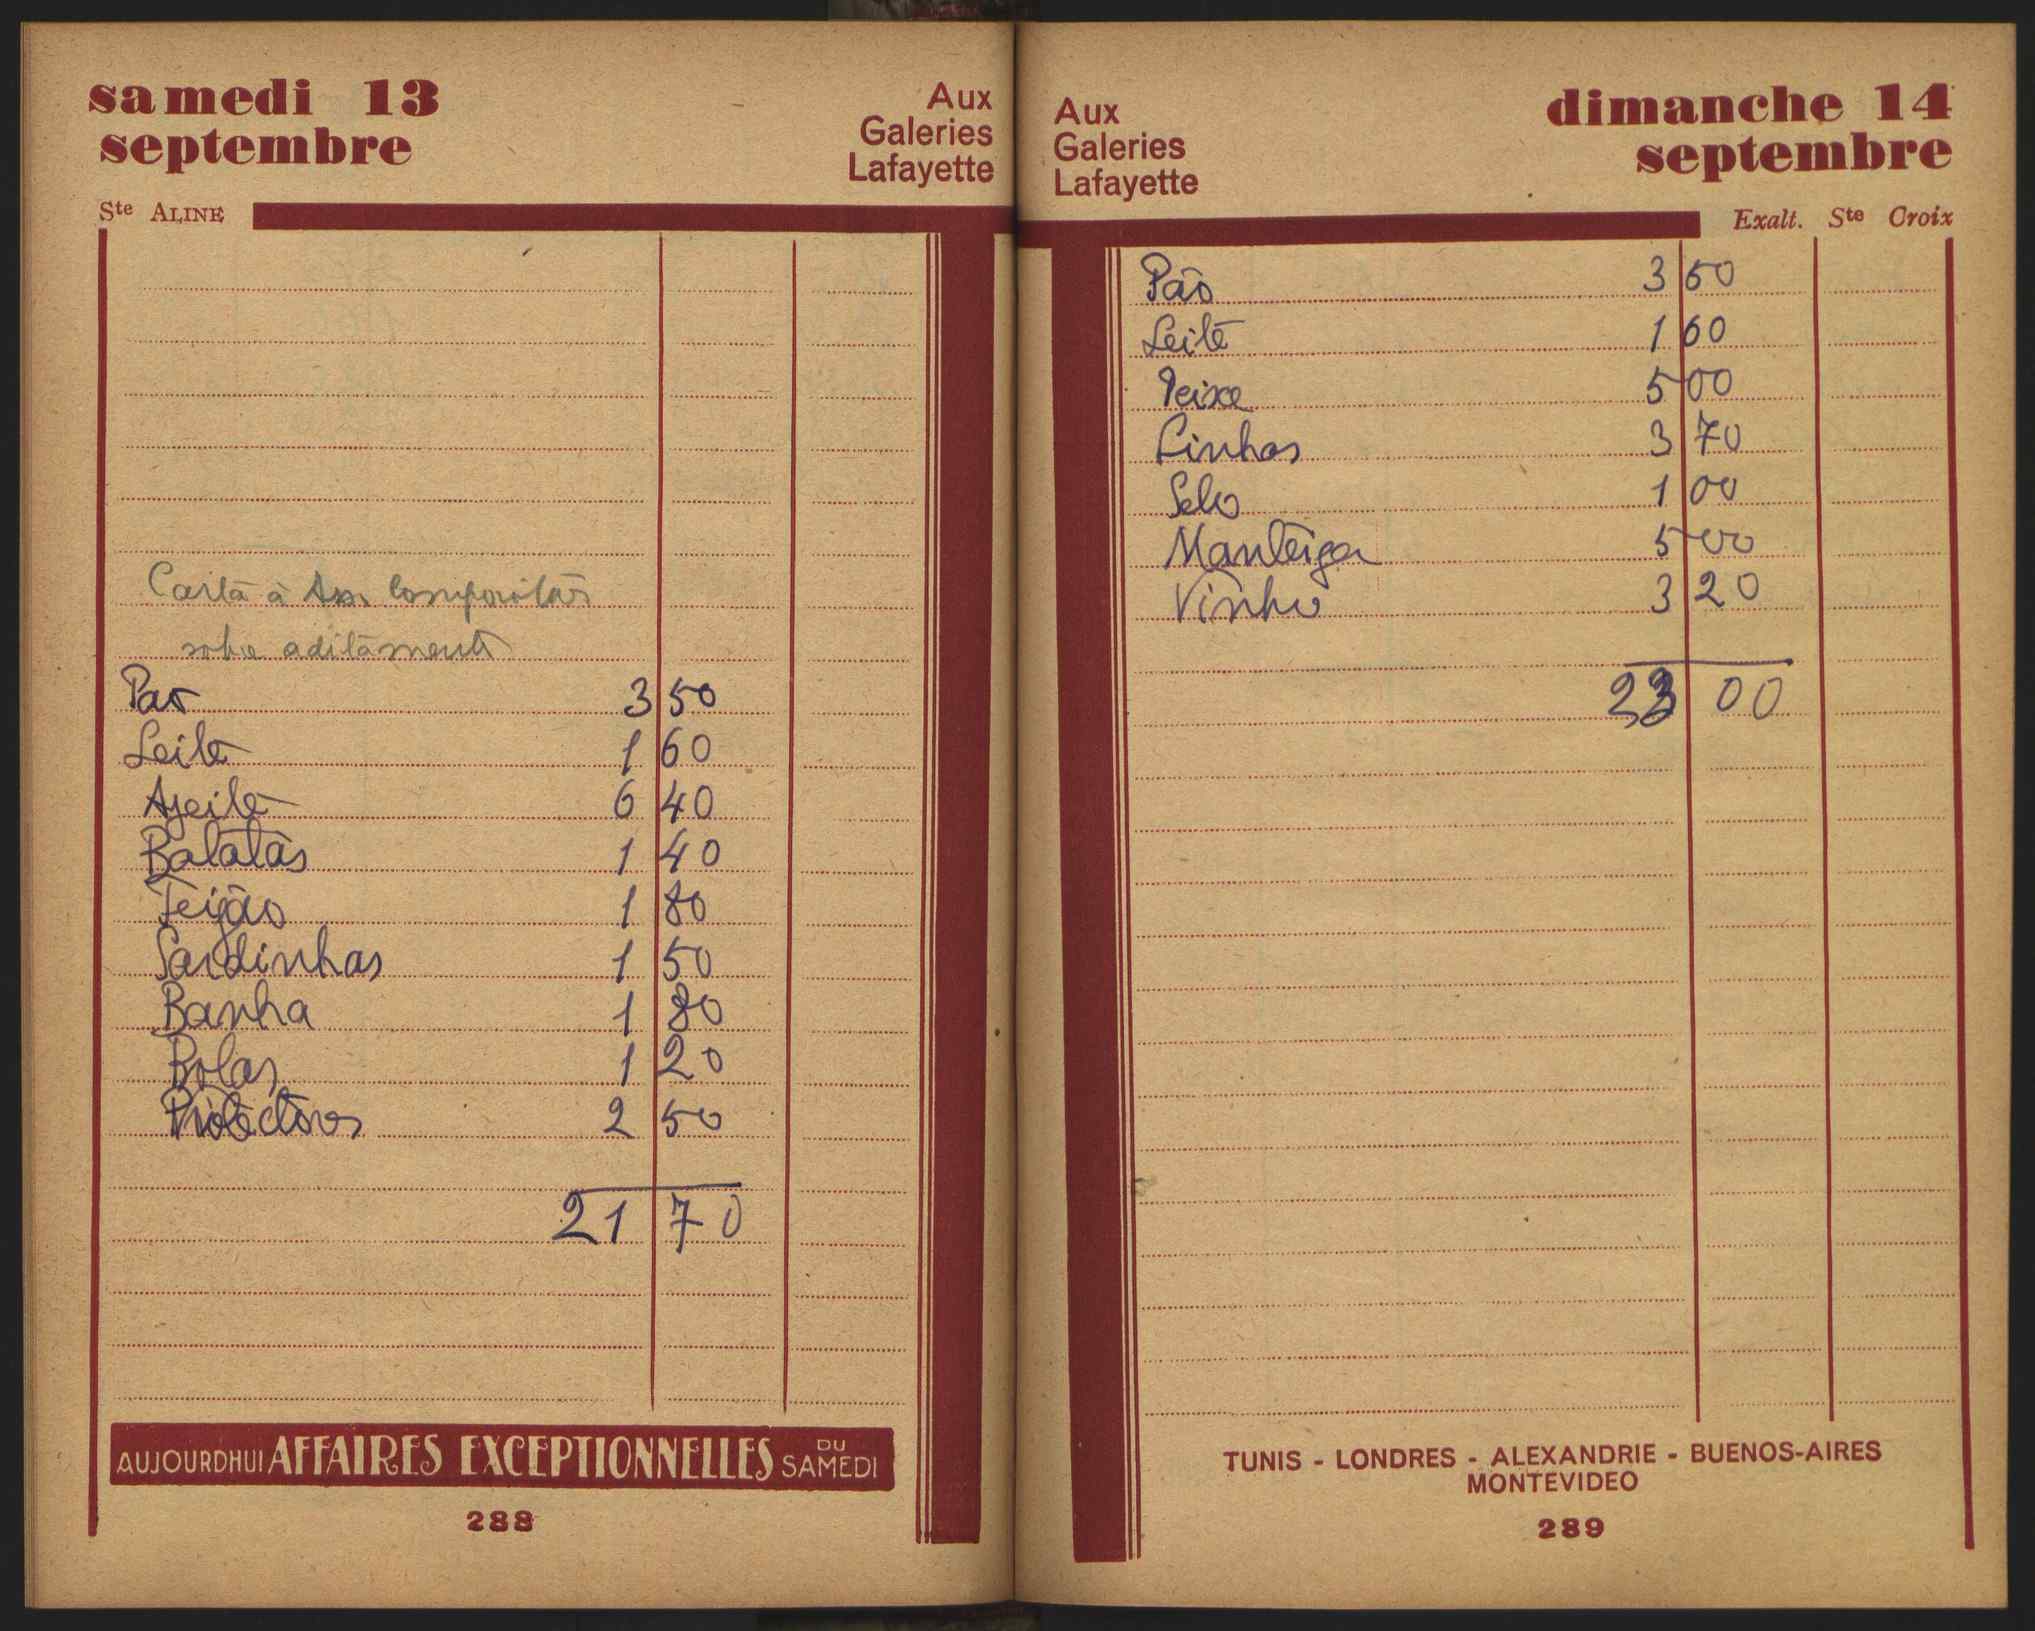 samedi 13
septembre
Aux
Galeries
Lafayette
Ste ALINE
Carta à Ass. Compositores
sobre aditamento
Pão 3 50
Leite 1 60
Azeite 6 40
Batatas 1 40
Feijão 1 80
Sardinhas 1 50
Banha 1 80
Bolas 1 20
Protectores 2 50
21 70
AUJOURDHUI AFFAIRES EXCEPTIONNELLES DU SAMEDI
288
Aux
Galeries
Lafayette
dimanche 14
septembre
Exalt. Ste Croix
Pão 3 50
Leite 1 60
Peixe 5 00
Linhas 3 70
Selo 1 00
Manteiga 5 00
Vinho 3 20
23 00
TUNIS - LONDRES - ALEXANDRIE - BUENOS-AIRES
MONTEVIDEO
289